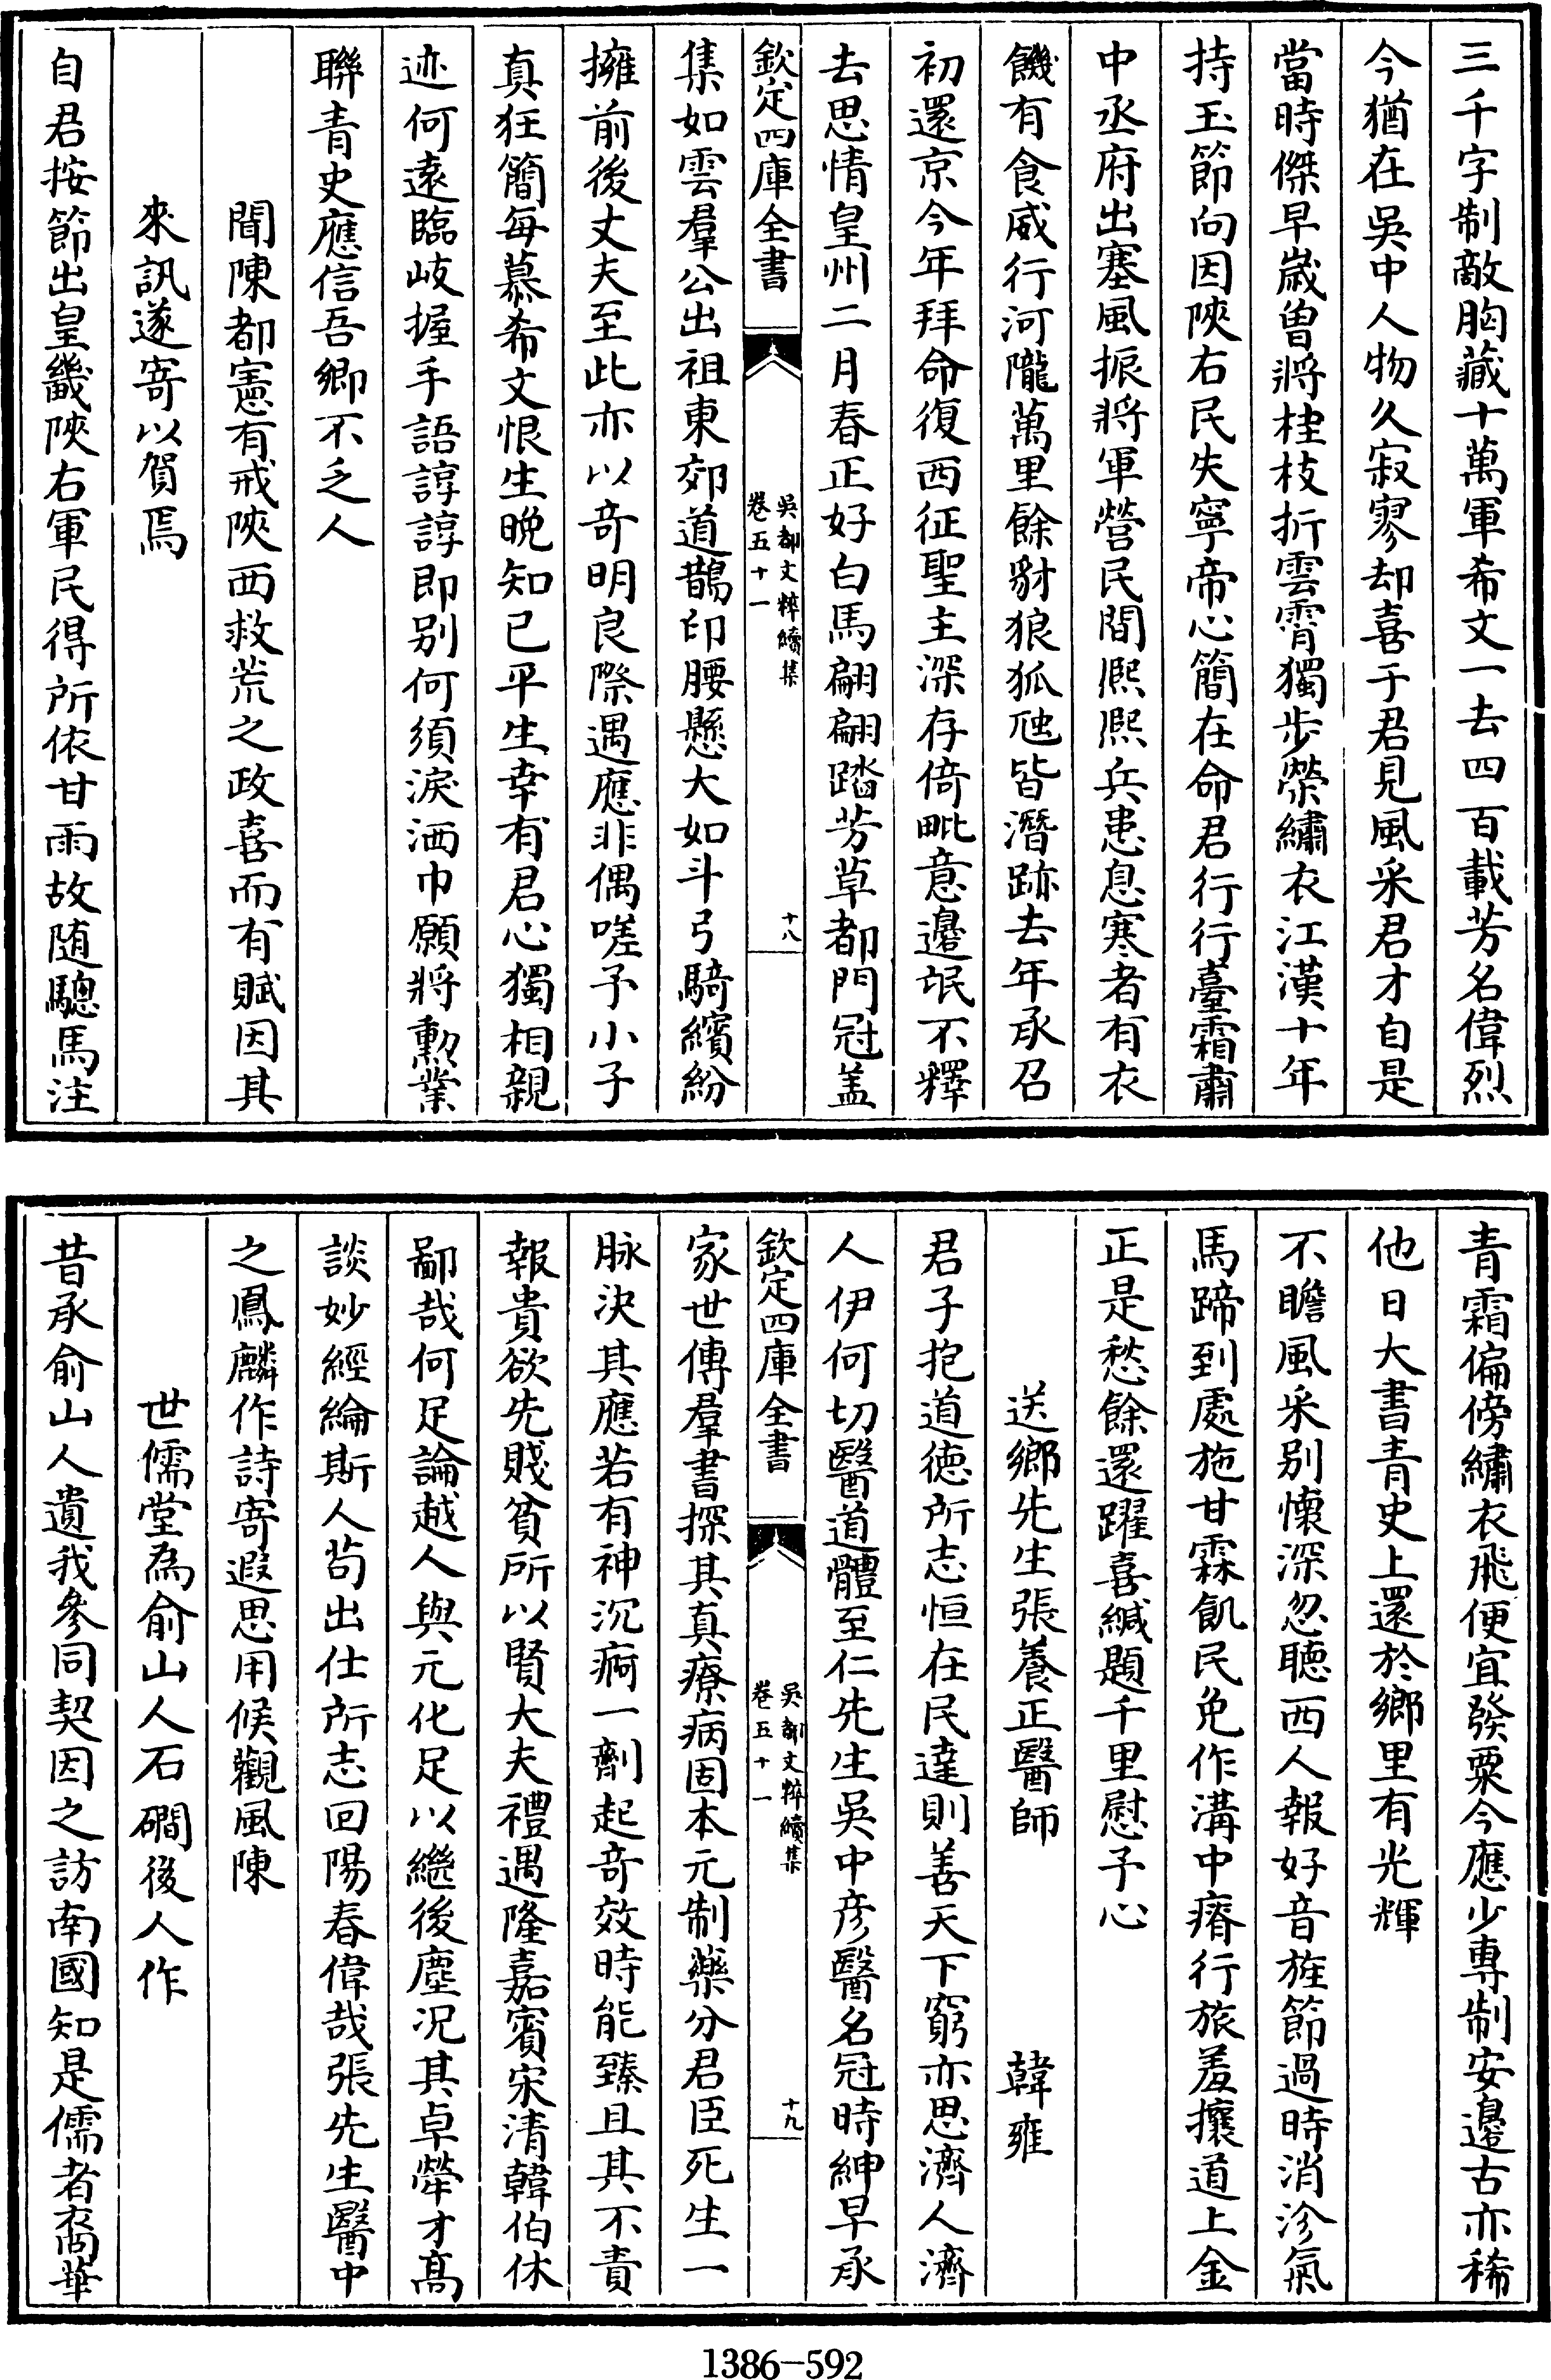 三千字制敵胸藏十萬軍希文一去四百載芳名偉烈
今猶在吳中人物久寂寥却喜于君見風采君才自是
當時傑早歲曾將桂枝折雲霄獨步榮繡衣江漢十年
持玉節向因陜右民失寧帝心簡在命君行行臺霜肅
中丞府出塞風振將軍營民間熈熈兵患息寒者有衣
饑有食威行河隴萬里餘豺狼狐虺皆潛跡去年承召
初還京今年拜命復西征聖主深存倚毗意邊氓不釋
去思情皇州二月春正好白馬翩翩踏芳草都門冠盖
欽定四庫全書
吳都文粹續集
卷五十一
十八
集如雲羣公出祖東郊道鵲印腰懸大如斗弓騎繽紛
擁前後丈夫至此亦以竒明良際遇應非偶嗟予小子
真狂簡每慕希文恨生晚知已平生幸有君心獨相親
迹何遠臨岐握手語諄諄即别何須淚洒巾願將勲業
聯青史應信吾鄉不乏人
聞陳都憲有戒陜西救荒之政喜而有賦因其
來訊遂寄以賀焉
自君按節出皇畿陜右軍民得所依甘雨故随驄馬注
青霜偏傍繡衣飛便宜發粟今應少專制安邊古亦稀
他日大書青史上還於鄉里有光輝
不瞻風采别懷深忽聴西人報好音旌節過時消沴氣
馬蹄到處施甘霖飢民免作溝中瘠行旅羞攘道上金
正是愁餘還躍喜緘題千里慰予心
送鄉先生張養正醫師 韓雍
君子抱道徳所志恒在民達則善天下窮亦思濟人濟
人伊何切醫道體至仁先生吳中彦醫名冠時紳早承
欽定四庫全書
吳都文粹續集
卷五十一
十九
家世傳羣書探其真療病固本元制藥分君臣死生一
脉決其應若有神沉痾一劑起竒效時能臻且其不責
報貴欲先賤貧所以賢大夫禮遇隆嘉賓宋清韓伯休
鄙哉何足論越人與元化足以繼後塵况其卓犖才髙
談妙經綸斯人茍出仕所志回陽春偉哉張先生醫中
之鳳麟作詩寄遐思用候觀風陳
世儒堂為俞山人石磵後人作
昔承俞山人遺我參同契因之訪南國知是儒者裔華
1386-592